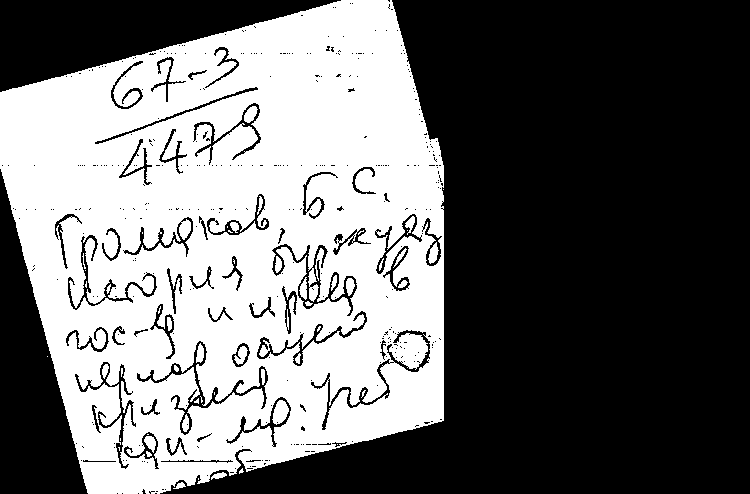 67-3
4479
Громаков, Б. С.
История буржуаз
гос-ва и права в
период общего
кризиса
кап-ма: Учеб